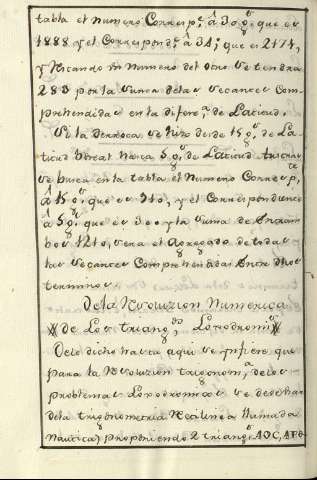 tabla el numero Corresp.te â 30 g.s que es
1888 y el Correspond.te â 34; que es 2171,
y Restando un numero del otro se tendra
283 por la suma delas secantes Com-
prehendidas en la difer.a de Latitud.
Si la derrota se hizo desde 15 g.s de La-
titud boreal hasta 5 g.s de Latitud
se busca en la tabla el Numero Corresp.te
â 15 g.s que es 910, y el Correspondiente
â 5 g.s que es 300 y la suma de Entram-
bos 1210, sera el Agregado de todas
las secantes Comprehendidas Entre dhos
terminos.
Dela Resoluzion Numerica
de Los triang.os Loxodromi.s
Delo dicho hasta aqui se ynfiere que
para la Resoluzion trigonom.a delos
problemas Loxodromicos se
dela trigonometria Rectilinea llamada
Nautica) proponiendo 2 triang.s AOC,